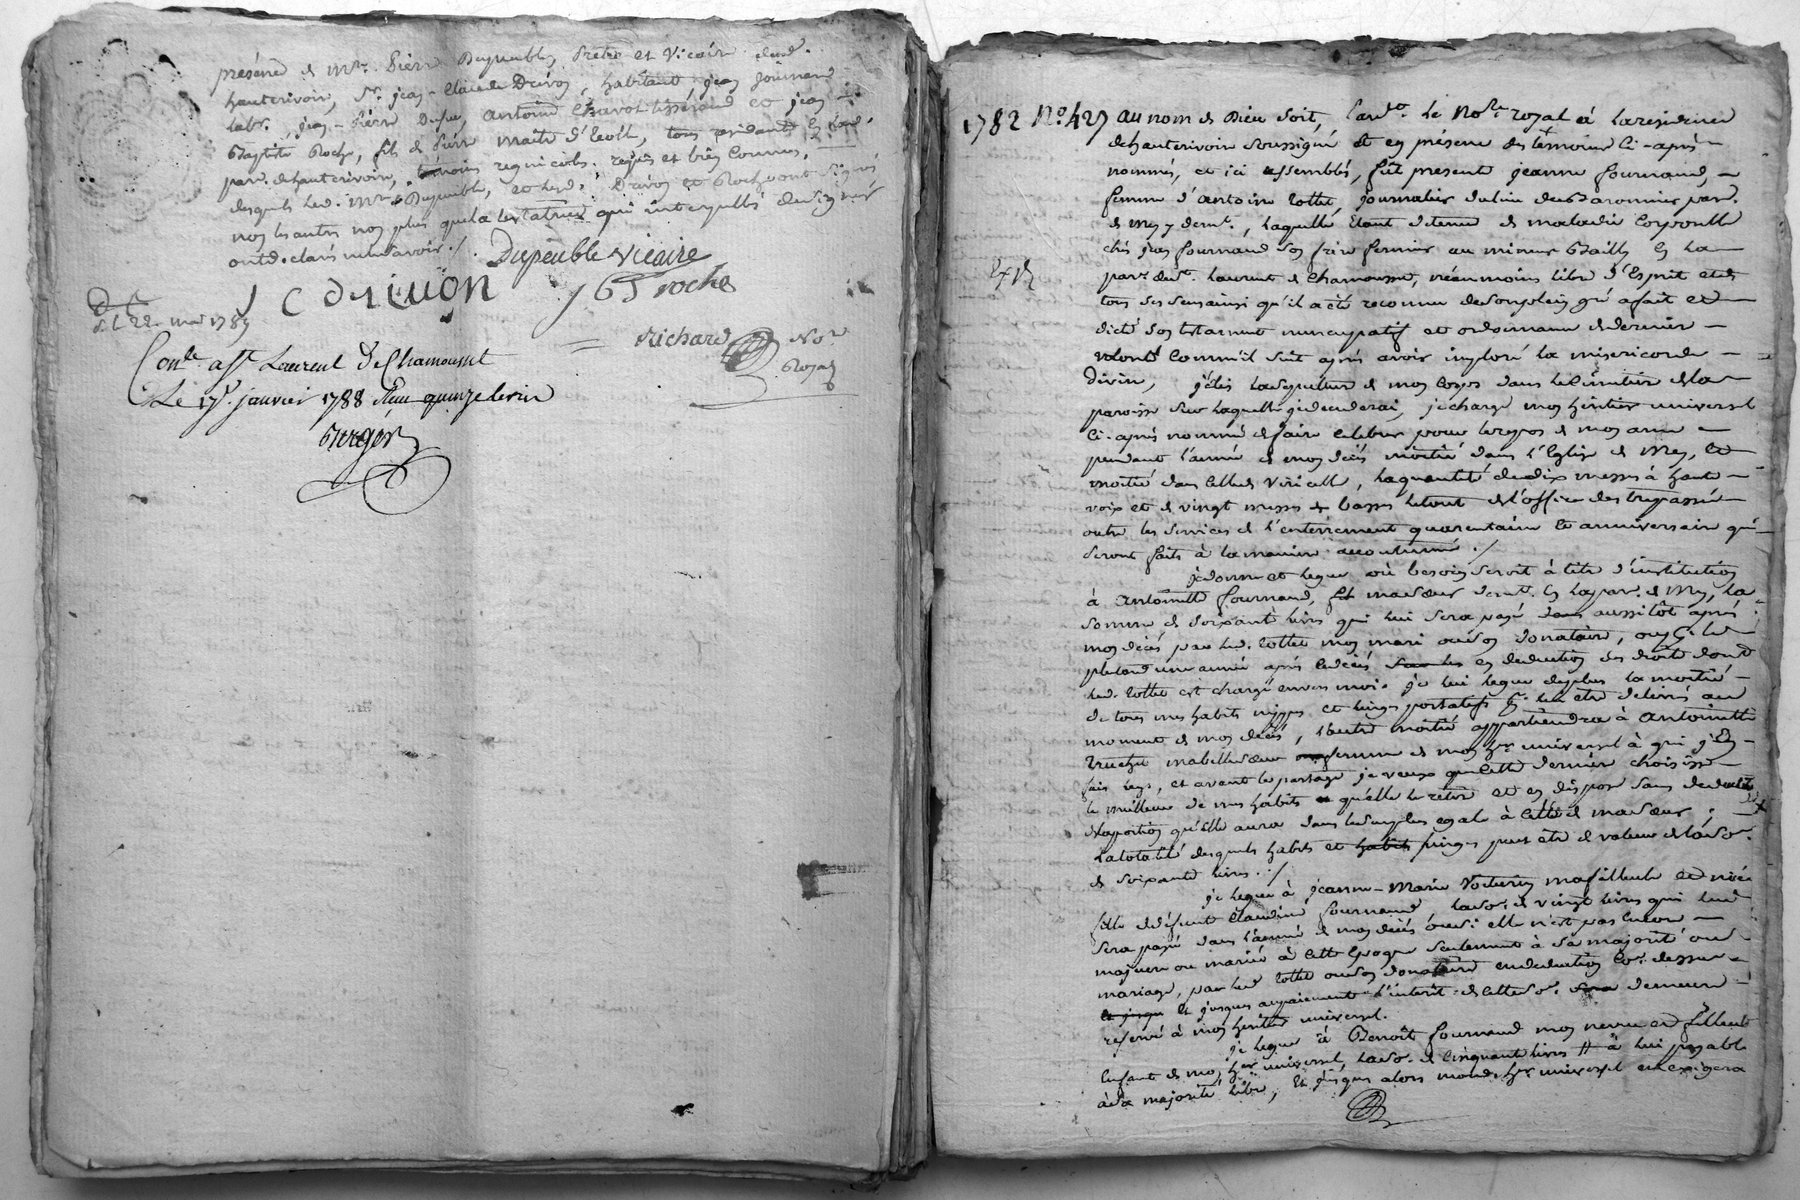 présence de Mre Pierre Dupeuble, Prêtre et Vicaire dud.
hauterivoire, Sr. jean-Claude Drivon, habitant jean fournand
labr., jean-Pierre Dupin, antoine Chavot tisserand et jean-
Baptiste Roche, fils de Pierre maître d'Ecolle, tous residants en lad.
par. de hauterivoire, témoins requis et bien connus,
desquels led. Mre Dupeuble, et lesd. Drivon et Roche ont signés
non les autres non plus que la testatrice qui interpellés de signer
ont declarés ne le savoir ./.
Dupeuble vicaire
J C Drivon
J B Roche
Richard
Nore
Royal
le 22 mai 1785
Conlé à St Laurent de Chamousset
Le 17e janvier 1788 Reçu quinze livres
Berger
1782 No. 427 au nom de Dieu soit, Pardt. le Nore royal à la residence
de hauterivoire soussigné et en présence des temoins ci-après
nommés, et ici assemblés, fût présente jeanne fournand,
femme d'antoine Collet, journalier du lieu des Baronnier par.
de Mey y demt., laquelle étant detenue de maladie corporelle
chés jean fournand son frère fermier au mineur Bailly en la
par. dud. Laurent de Chamousset, néanmoins libre d'Esprit et de
Exp.
tous ses sens ainsi qu'il a été reconnu de son plein gré a fait et
dicté son testament nuncupatif et ordonnance de dernière
volonté comme il suit après avoir imploré la misericorde
divine, j'élis la sepulture de mon corps dans le cimetière de la
paroisse sur laquelle je decederai, je charge mon héritier universel
ci-après nommé de faire celebrer pour le repos de mon ame
pendant l'année de mon décès moitié dans l'Eglise de Mey, et
moitié dans celle de Viricelle, la quantité de dix messes à haute
voix et de vingt messes basses le tout de l'office des trepassés
outre les services de l'enterrement quarantaine et anniversaire qui
seront faits à la manière accoutumée ./.
je donne et legue où besoin seroit à titre d'institution
à Antoinette fournand, ma sœur demt. en la par. de Mey, la
somme de soixante livres qui lui sera payé dans aussitôt après
mon décès par led. Collet mon mari ou son donataire,
plutard une année après le décès en deduction des droits dont
led. Collet est chargé envers moi. je lui legue de plus la moitié
de tous mes habits nippes et linges portatifs pr. lui être delivrés au
moment de mon décès, l'autre moitié appartiendra à antoinette
truchet ma belle sœur femme de mon hér. universel à qui j'en
fais legs, et avant le partage je veux que cette dernière choisisse
le meilleur de mes habits qu'elle le retire et en dispose sans deduction
de la portion qu'elle aura dans le surplus egale à celle de ma sœur ;
la totalité desquels habits et habits linges peut être de valeur de la so.
de soixante livres ./.
je legue à jeanne-Marie Voiturin ma filleule et nièce
fille de defunte Claudine fournand la so. de vingt livres qui lui
sera payé dans l'année de mon décès ou si elle n'est pas encor
majeure ou mariée à cette époque seulement à sa majorité ou
mariage, par led. Collet ou son donataire en deduction co. dessus
et jusqu et jusques au paiement l'interêt de cette so. sera demeure
reservé à mon heritier universel.
je legue à Benoît fournand mon neveu et filleul
enfant de mon hér. universel, la so. de cinquante livres à lui payable
à sa majorité libre, et jusques alors mond. hér. universel en exigera